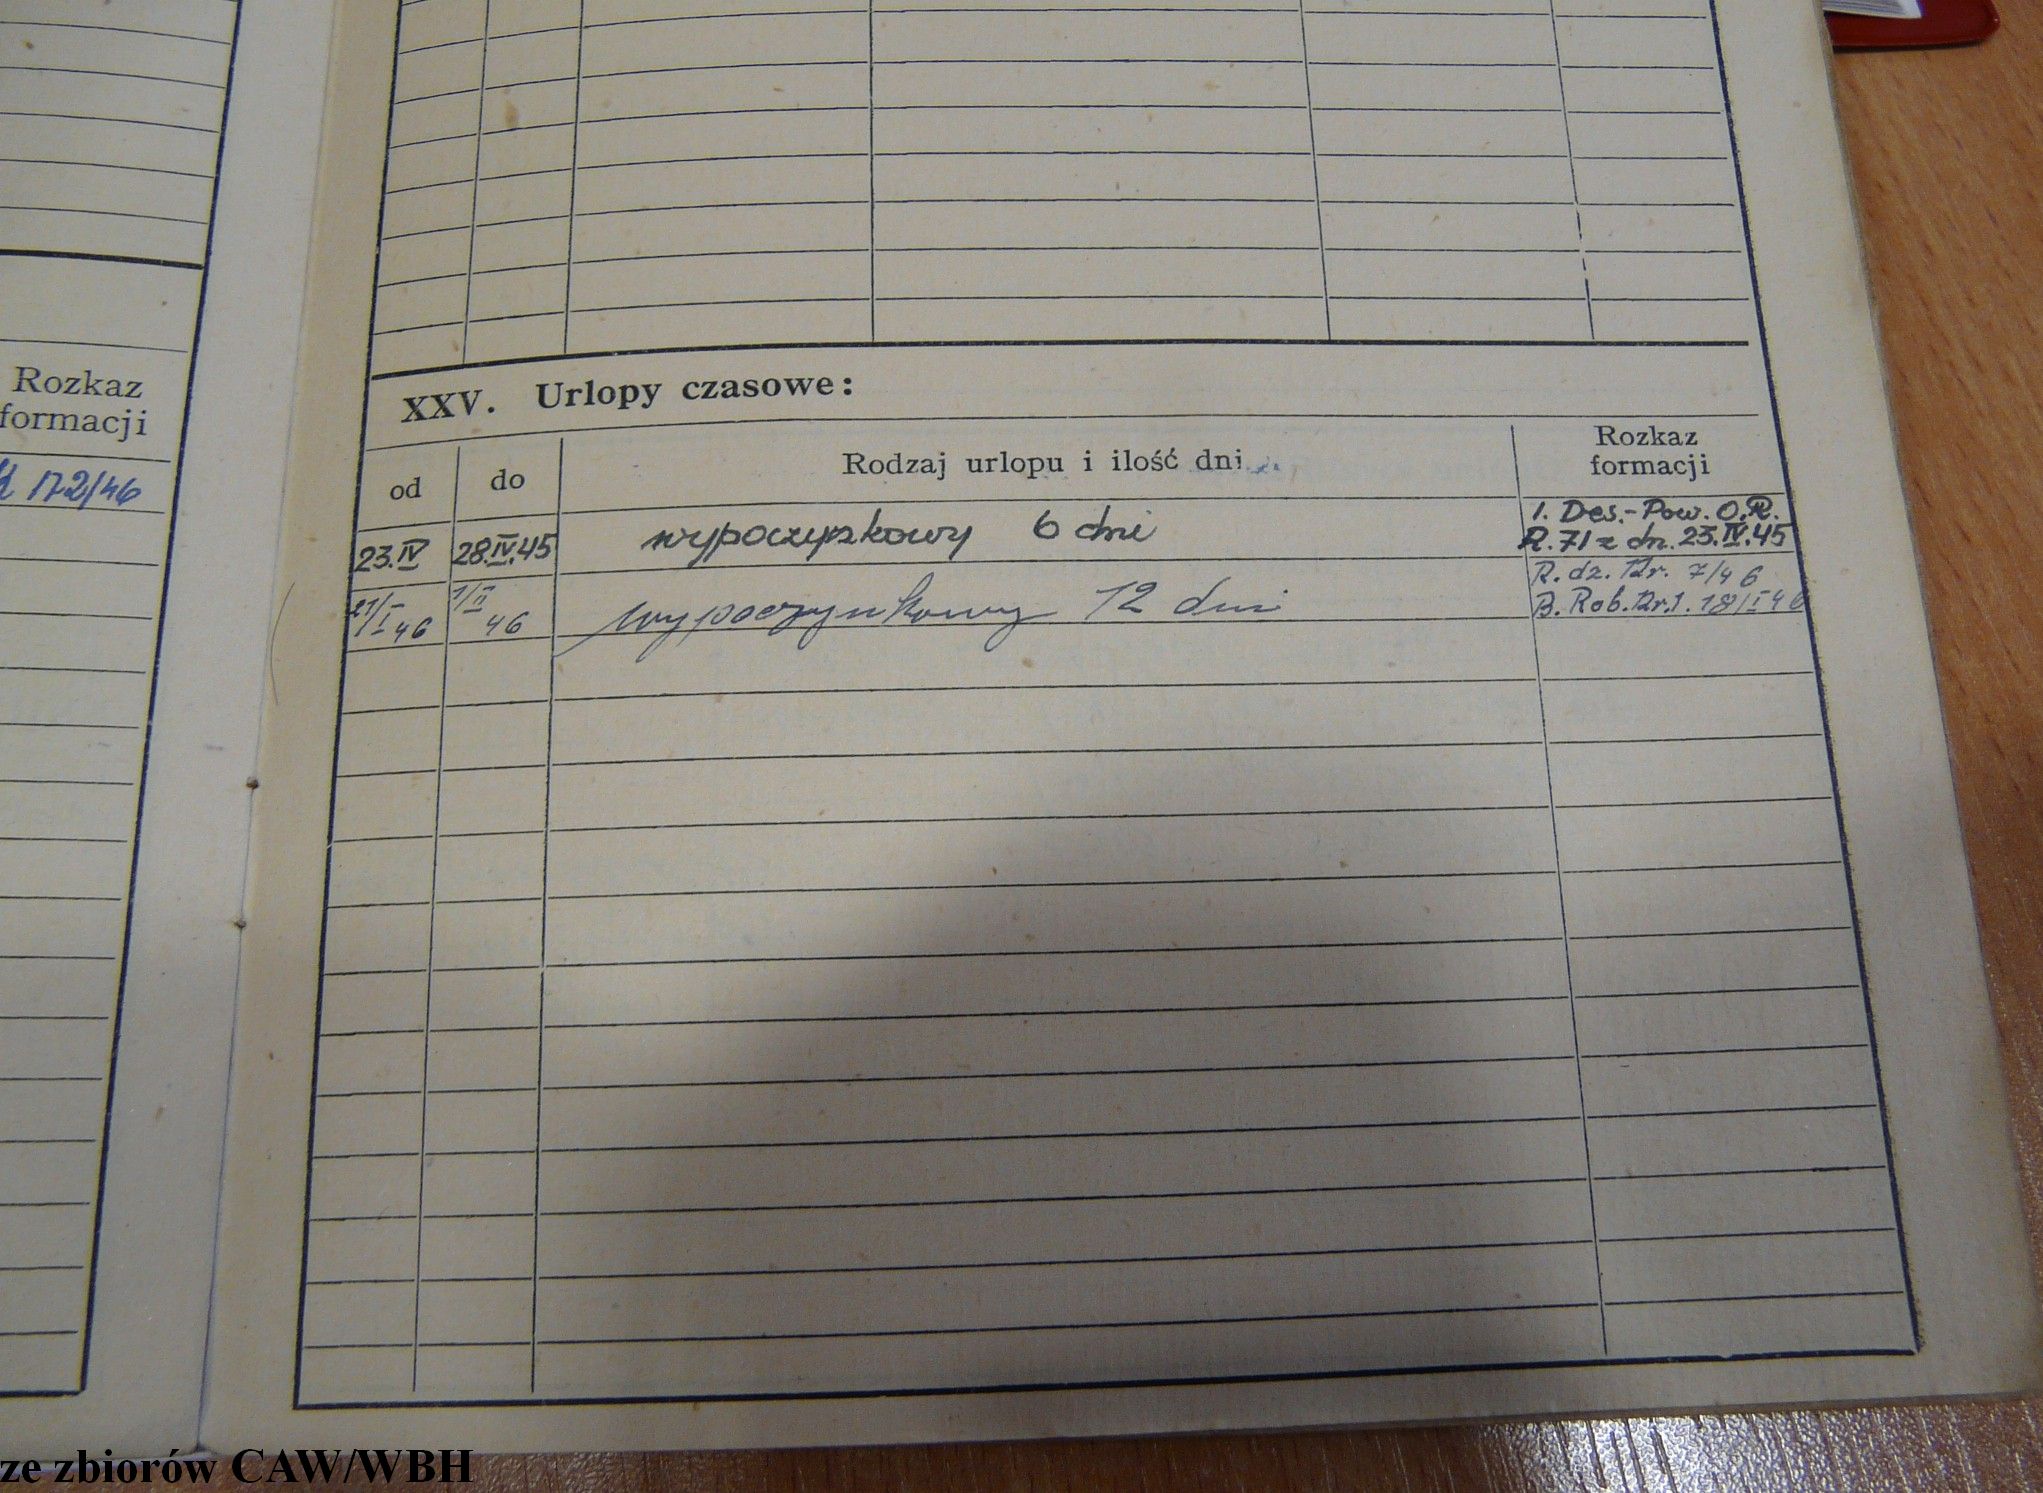 Rozkaz
formacji
172/46
XXV. Urlopy czasowe:
od
do
Rodzaj urlopu i ilość dni
Rozkaz
formacji
23.IV
28.IV.45
wypoczynkowy 6 dni
1. Des.-Pow. O.R.
R. 71 z dn. 23.IV.45
21/I 46
1/II 46
wypoczynkowy 12 dni
R. dz. Nr. 7/46
B. Rob. Nr. 1. 18/I 46
ze zbiorów CAW/WBH